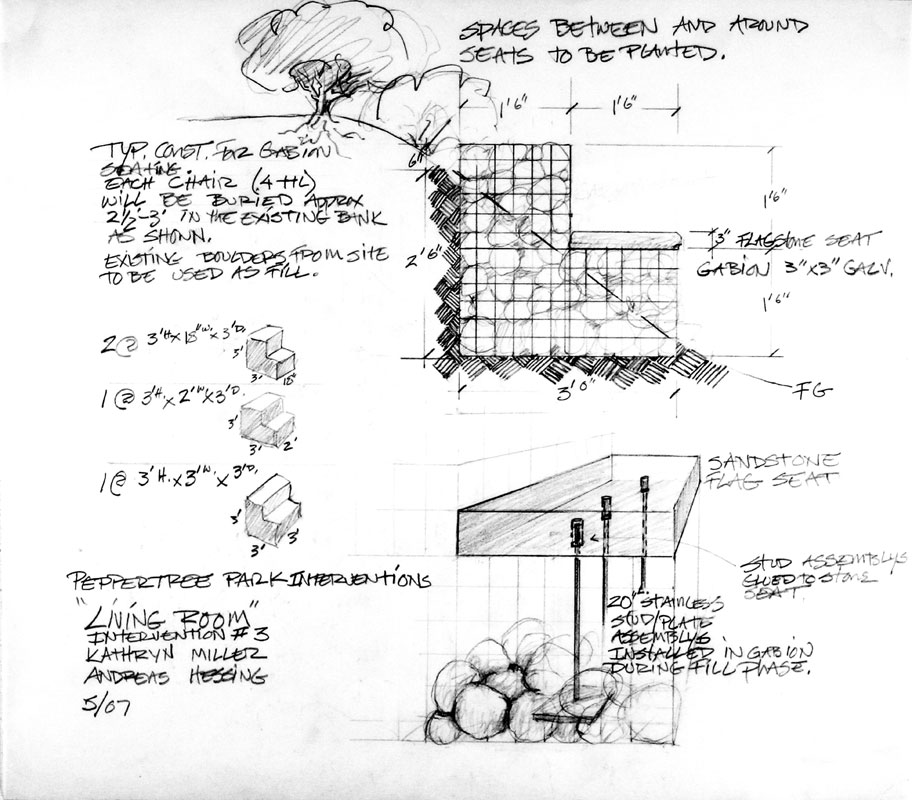 SPACES BETWEEN AND AROUND
SEATS TO BE PLANTED.
1'6"
1'6"
TYP. CONST. FOR GABION
SEATING.
EACH CHAIR (4 TTL)
WILL BE BURIED APPROX
2½'-3' IN THE EXISTING BANK
AS SHOWN.
EXISTING BOULDERS FROM SITE
TO BE USED AS FILL.
6"
2'6"
1'6"
3" FLAGSTONE SEAT
GABION 3"x3" GALV.
1'6"
3'0"
FG
2 @ 3'H. x 18"W. x 3'D.
3'
3'
18"
1 @ 3'H. x 2'W. x 3'D.
3'
3'
2'
1 @ 3'H. x 3'W. x 3'D.
3'
3'
3'
SANDSTONE
FLAG SEAT
STUD ASSEMBLYS
GLUED TO STONE
SEAT.
20" STAINLESS
STUD/PLATE
ASSEMBLYS
INSTALLED IN GABION
DURING FILL PHASE.
PEPPERTREE PARK INTERVENTIONS
"LIVING ROOM"
INTERVENTION # 3
KATHRYN MILLER
ANDREAS HESSING
5/07